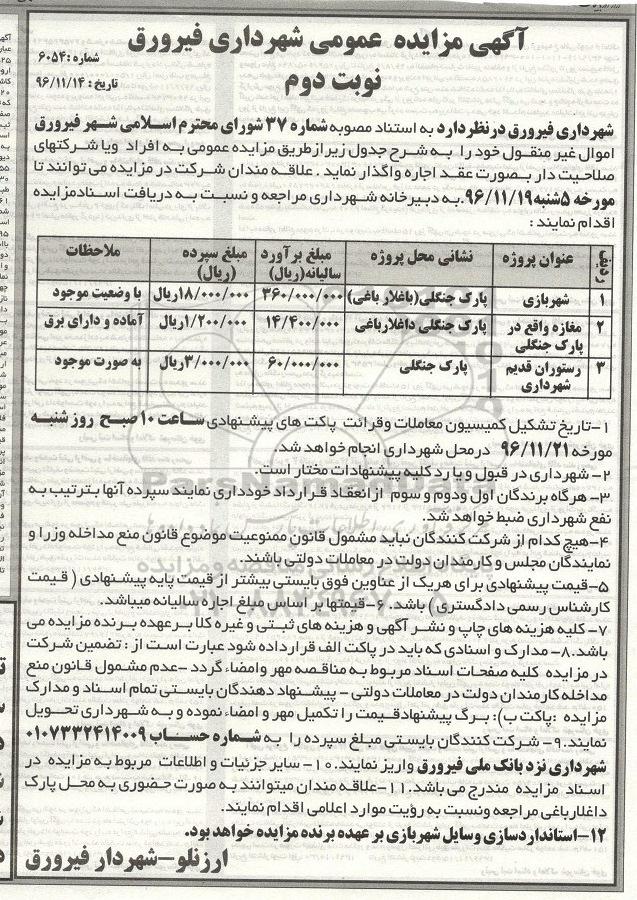 آگهی مزایده عمومی شهرداری فیرورق
نوبت دوم
شماره: ۶۰۵۴
تاریخ: ۹۶/۱۱/۱۴
شهرداری فیرورق در نظر دارد به استناد مصوبه شماره ۳۷ شورای محترم اسلامی شهر فیرورق
اموال غیر منقول خود را به شرح جدول زیر از طریق مزایده عمومی به افراد ویا شرکتهای
صلاحیت دار بصورت عقد اجاره واگذار نماید. علاقه مندان شرکت در مزایده می توانند تا
مورخه ۵شنبه ۹۶/۱۱/۱۹ به دبیرخانه شهرداری مراجعه و نسبت به دریافت اسناد مزایده
اقدام نمایند:
ردیف عنوان پروژه نشانی محل پروژه مبلغ برآورد سالیانه(ریال) مبلغ سپرده (ریال) ملاحظات
۱ شهربازی پارک جنگلی(باغلار باغی) ۳۶۰/۰۰۰/۰۰۰ ۱۸/۰۰۰/۰۰۰ریال با وضعیت موجود
۲ مغازه واقع در پارک جنگلی پارک جنگلی داغلارباغی ۱۴/۴۰۰/۰۰۰ ۱/۲۰۰/۰۰۰ریال آماده و دارای برق
۳ رستوران قدیم شهرداری پارک جنگلی ۶۰/۰۰۰/۰۰۰ ۳/۰۰۰/۰۰۰ریال به صورت موجود
۱-تاریخ تشکیل کمیسیون معاملات وقرائت پاکت های پیشنهادی ساعت ۱۰ صبح روز شنبه
مورخه ۹۶/۱۱/۲۱ در محل شهرداری انجام خواهد شد.
۲-شهرداری در قبول و یا رد کلیه پیشنهادات مختار است.
۳-هرگاه برندگان اول ودوم و سوم از انعقاد قرارداد خودداری نمایند سپرده آنها بترتیب به
نفع شهرداری ضبط خواهد شد.
۴-هیچ کدام از شرکت کنندگان نباید مشمول قانون ممنوعیت موضوع قانون منع مداخله وزرا و
نمایندگان مجلس و کارمندان دولت در معاملات دولتی باشند.
۵-قیمت پیشنهادی برای هریک از عناوین فوق بایستی بیشتر از قیمت پایه پیشنهادی ( قیمت
کارشناس رسمی دادگستری) باشد. ۶-قیمتها بر اساس مبلغ اجاره سالیانه میباشد.
۷-کلیه هزینه های چاپ و نشر آگهی و هزینه های ثبتی و غیره کلا بر عهده برنده مزایده می
باشد.۸-مدارک و اسنادی که باید در پاکت الف قرارداده شود عبارت است از: تضمین شرکت
در مزایده کلیه صفحات اسناد مربوط به مناقصه مهر وامضاء گردد-عدم مشمول قانون منع
مداخله کارمندان دولت در معاملات دولتی - پیشنهاد دهندگان بایستی تمام اسناد و مدارک
مزایده :پاکت ب): برگ پیشنهاد قیمت را تکمیل مهر و امضاء نموده و به شهرداری تحویل
نمایند.۹-شرکت کنندگان بایستی مبلغ سپرده را به شماره حساب ۰۱۰۷۳۳۲۴۱۴۰۰۹
شهرداری نزد بانک ملی فیرورق واریز نمایند.۱۰-سایر جزئیات و اطلاعات مربوط به مزایده در
اسناد مزایده مندرج می باشد.۱۱-علاقه مندان میتوانند به صورت حضوری به محل پارک
داغلارباغی مراجعه ونسبت به رؤیت موارد اعلامی اقدام نمایند.
۱۲-استانداردسازی وسایل شهربازی بر عهده برنده مزایده خواهد بود.
ارزنلو-شهردار فیرورق